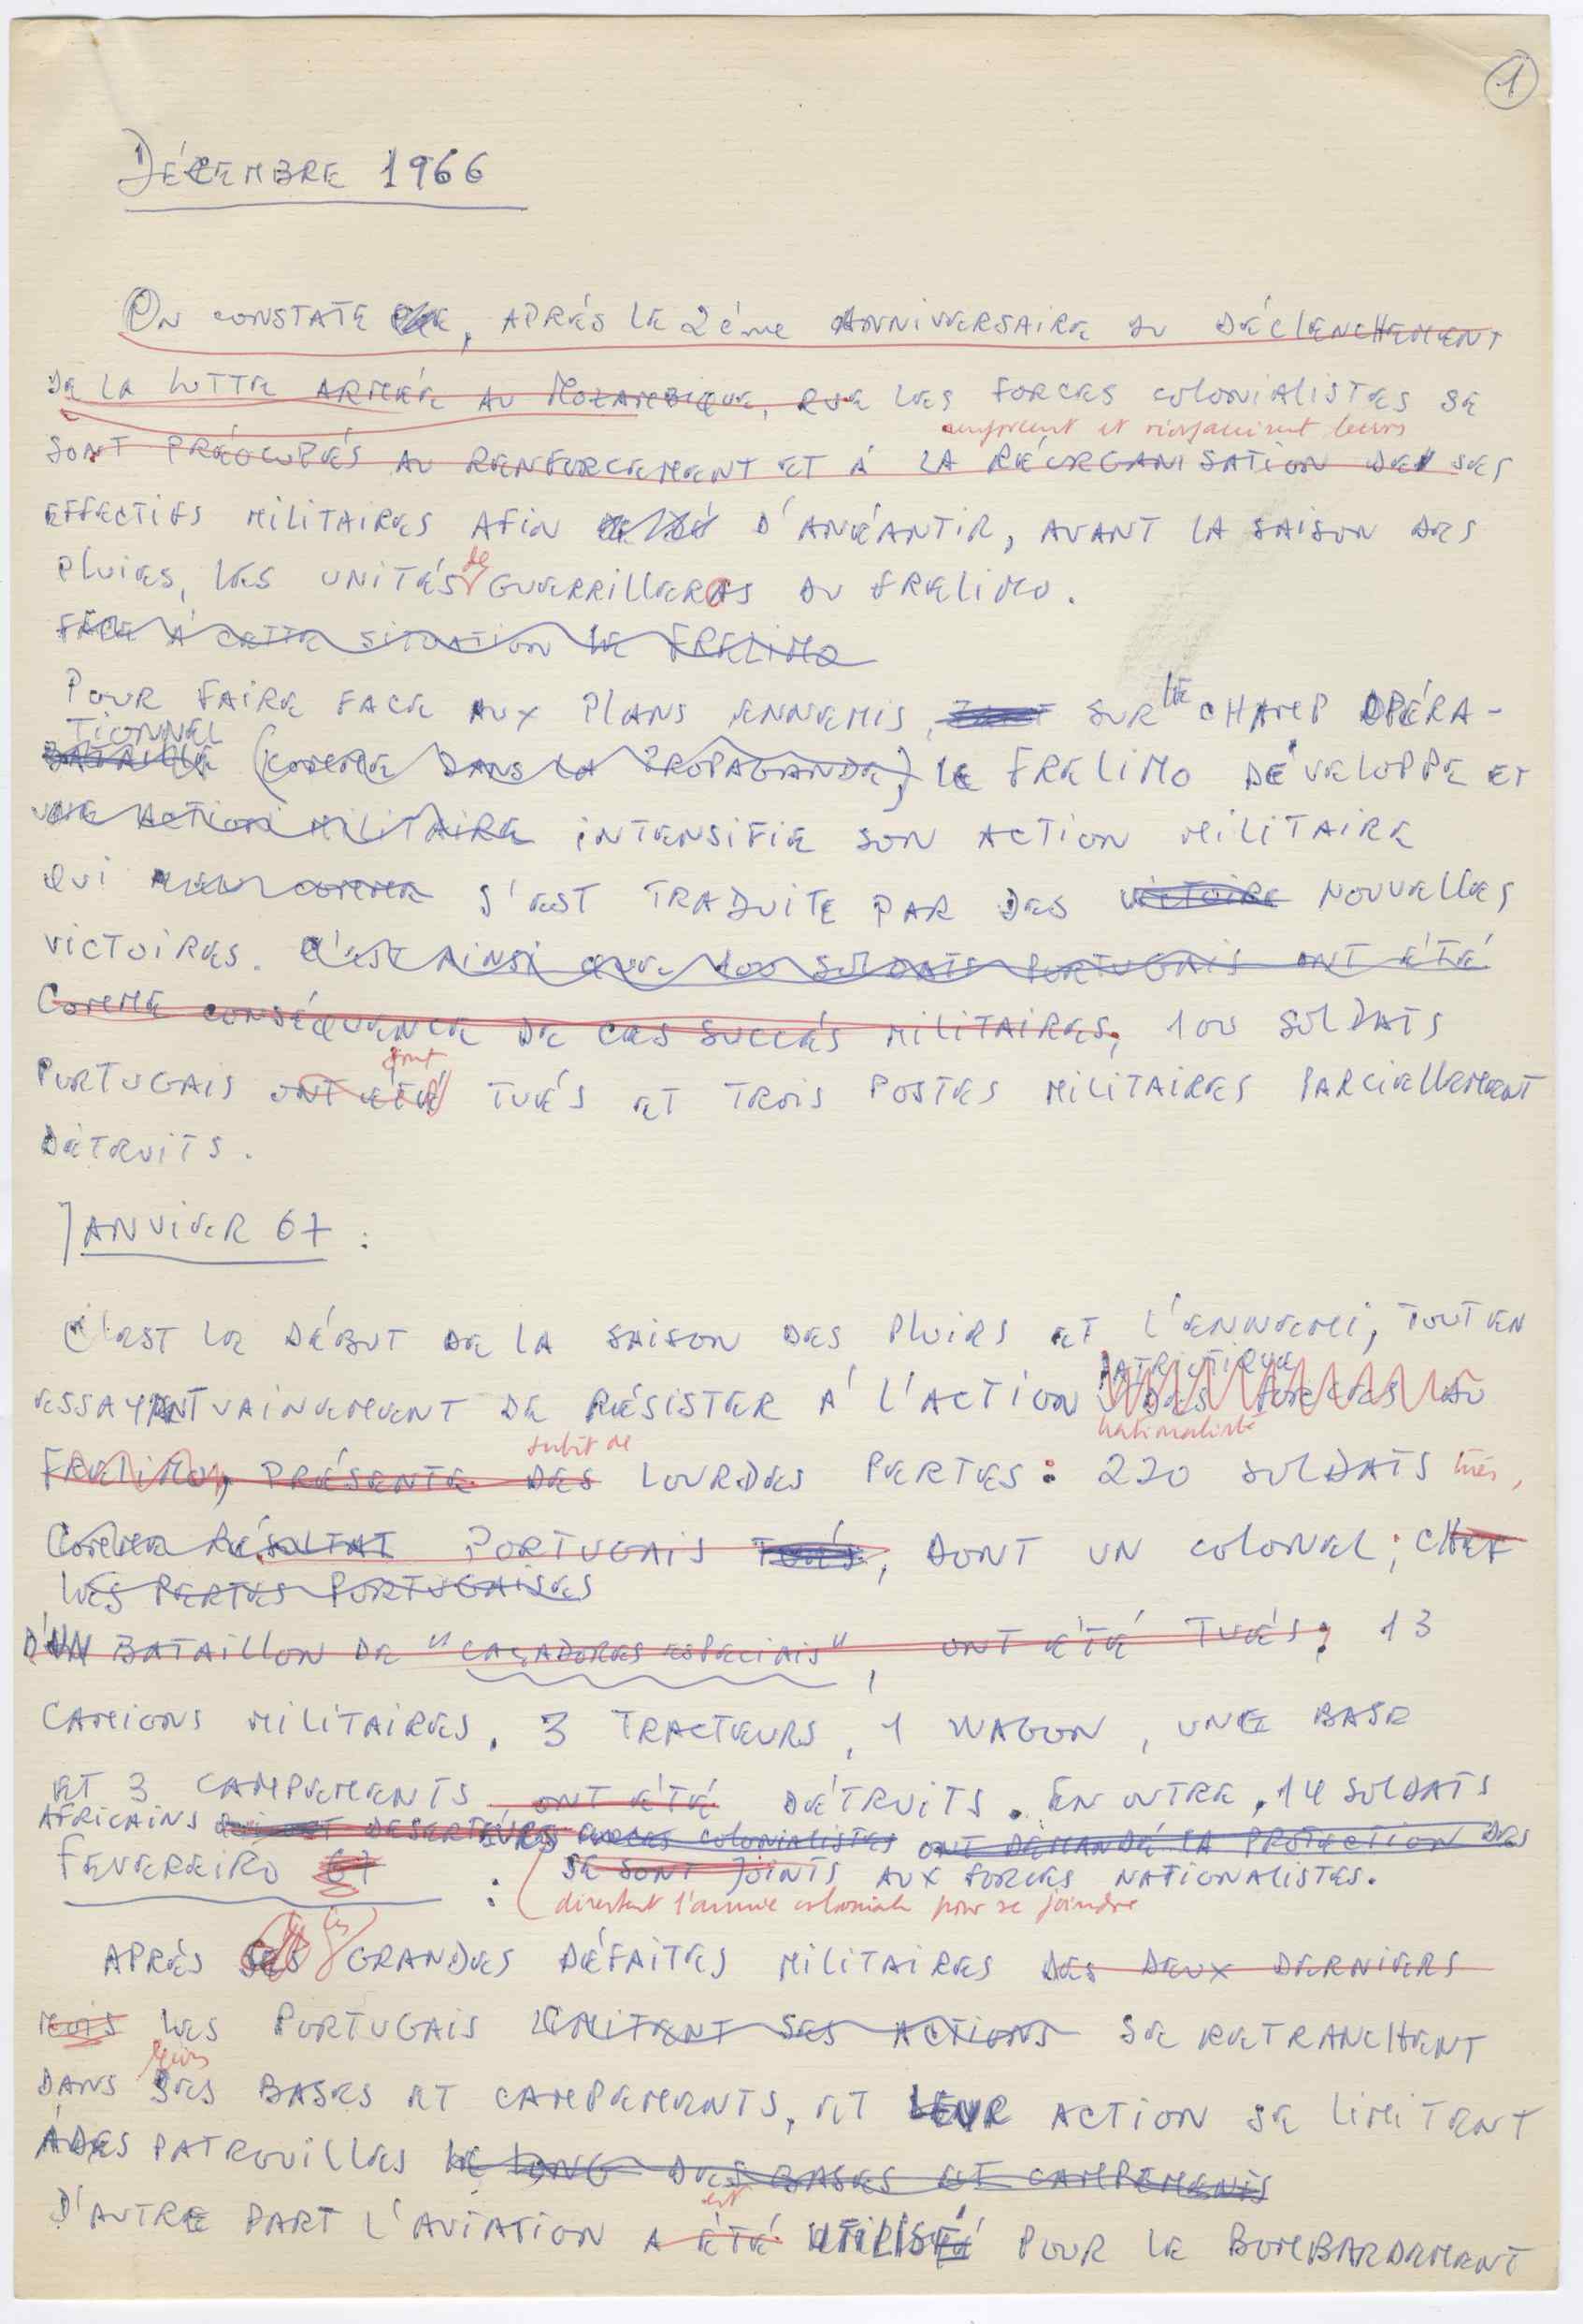 1
DÉCEMBRE 1966
ON CONSTATE QUE, APRÉS LE 2éme ANNIVERSAIRE DU DÉCLENCHEMENT
DE LA LUTTE ARMÉE AU MOZAMBIQUE, QUE LES FORCES COLONIALISTES SE
renforcent et réorganisent leurs
SONT PRÉOCUPÉS AU RENFORCEMENT ET Á LA RÉORGANISATION DE SES
EFFECTIFS MILITAIRES AFIN D'ANÉANTIR, AVANT LA SAISON DES
PLUIES, LES UNITÉS de GUERRILLEROS DU FRELIMO.
FACE Á CETTE SITUATION LE FRELIMO
POUR FAIRE FACE AUX PLANS ENNEMIS, SUR LE CHAMP OPÉRA-
TIONNEL
BATAILLE (COMME DANS LA PROPAGANDE) LE FRELIMO DÉVELOPPE ET
UNE ACTION MILITAIRE INTENSIFIE SON ACTION MILITAIRE
QUI S'EST TRADUITE PAR DES VICTOIRE NOUVELLES
VICTOIRES. C'EST AINSI QUE 100 SOLDATS PORTUGAIS ONT ÉTÉ
COMME CONSÉQUENCE DE CES SUCCÉS MILITAIRES, 100 SOLDATS
sont
PORTUGAIS ONT ÉTÉ TUÉS ET TROIS POSTES MILITAIRES PARCIELLEMENT
DÉTRUITS.
JANVIER 67 :
C'EST LE DÉBUT DE LA SAISON DES PLUIES ET L'ENNEMI, TOUT EN
PATRIOTIQUE
ESSAYANT VAINEMENT DE RÉSISTER Á L'ACTION DES FORCES DU
nationaliste
subit de
FRELIMO, PRÉSENTE DES LOURDES PERTES : 220 SOLDATS tués,
COMME RÉSULTAT PORTUGAIS TUÉS, DONT UN COLONEL; CHEF
LES PERTES PORTUGAISES
D'UN BATAILLON DE "CAÇADORES ESPECIAIS", ONT ÉTÉ TUÉS; 13
CAMIONS MILITAIRES, 3 TRACTEURS, 1 WAGON, UNE BASE
ET 3 CAMPEMENTS ONT ÉTÉ DÉTRUITS. EN OUTRE, 14 SOLDATS
AFRICAINS DESERTEURS FORCES COLONIALISTES ONT DEMANDÉ LA PROTECTION DES
FEVEREIRO 67 : SE SONT JOINTS AUX FORCES NATIONALISTES.
désertent l'armée coloniale pour se joindre
APRÉS les GRANDES DÉFAITES MILITAIRES DES DEUX DERNIERS
MOIS LES PORTUGAIS LIMITENT SES ACTIONS SE RETRANCHENT
leurs
DANS SES BASES ET CAMPEMENTS, ET LEUR ACTION SE LIMITENT
Á DES PATROUILLES LE LONG DES BASES ET CAMPEMENTS
est
D'AUTRE PART L'AVIATION A ÉTÉ UTILISÉ POUR LE BOMBARDEMENT